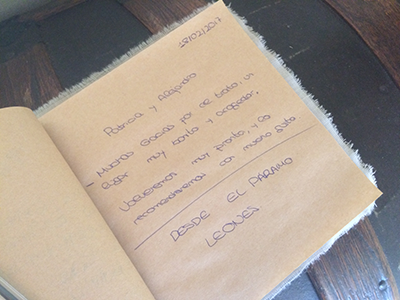 28/02/2017
Patricia y Alejandro
- Muchas Gracias por el trato. Un
lugar muy bonito y acogedor,
Volveremos muy pronto, y lo
recomendaremos con mucho gusto
DESDE EL PARAISO
LEONES